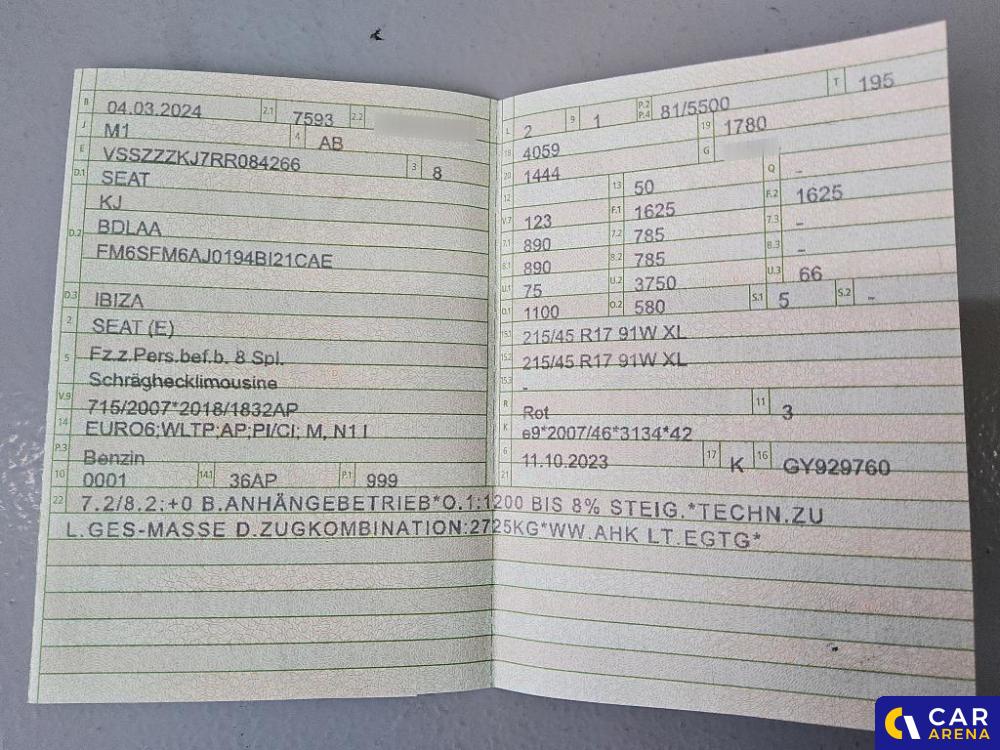 B 04.03.2024 2.1 7593 2.2
J M1 4 AB
E VSSZZZKJ7RR084266 3 8
D.1 SEAT
KJ
D.2 BDLAA
FM6SFM6AJ0194BI21CAE
D.3 IBIZA
2 SEAT (E)
5 Fz.z.Pers.bef.b. 8 Spl.
Schräghecklimousine
V.9 715/2007*2018/1832AP
14 EURO6;WLTP;AP;PI/CI; M, N1 I
P.3 Benzin
10 0001 14.1 36AP P.1 999
L 2 9 1 P.2 P.4 81/5500 T 195
18 4059 19 1780
20 1444 G
12 13 50 Q -
V.7 123 F.1 1625 F.2 1625
7.1 890 7.2 785 7.3 -
8.1 890 8.2 785 8.3 -
U.1 75 U.2 3750 U.3 66
O.1 1100 O.2 580 S.1 5 S.2 -
15.1 215/45 R17 91W XL
15.2 215/45 R17 91W XL
15.3 -
R Rot 11 3
K e9*2007/46*3134*42
6 11.10.2023 17 K 16 GY929760
21
22 7.2/8.2:+0 B.ANHÄNGEBETRIEB*O.1:1200 BIS 8% STEIG.*TECHN.ZU
L.GES-MASSE D.ZUGKOMBINATION:2725KG*WW.AHK LT.EGTG*
CAR
ARENA